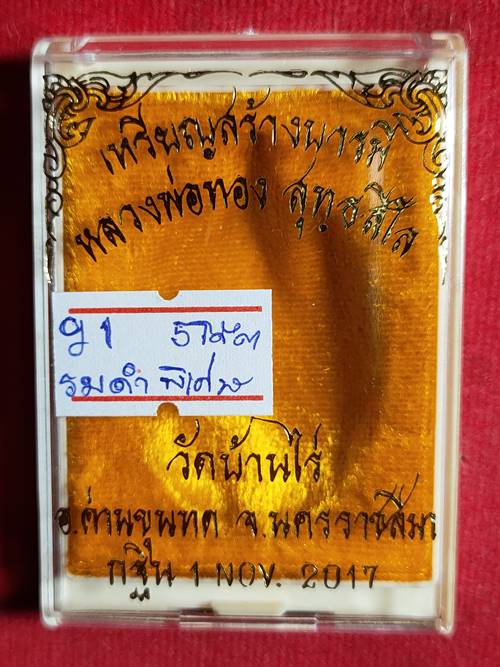 เหรียญสร้างบารมี
หลวงพ่อทอง สุทฺธสีโล
รมดำ พิเศษ
วัดบ้านไร่
อ.ด่านขุนทด จ.นครราชสีมา
กฐิน 1 NOV. 2017